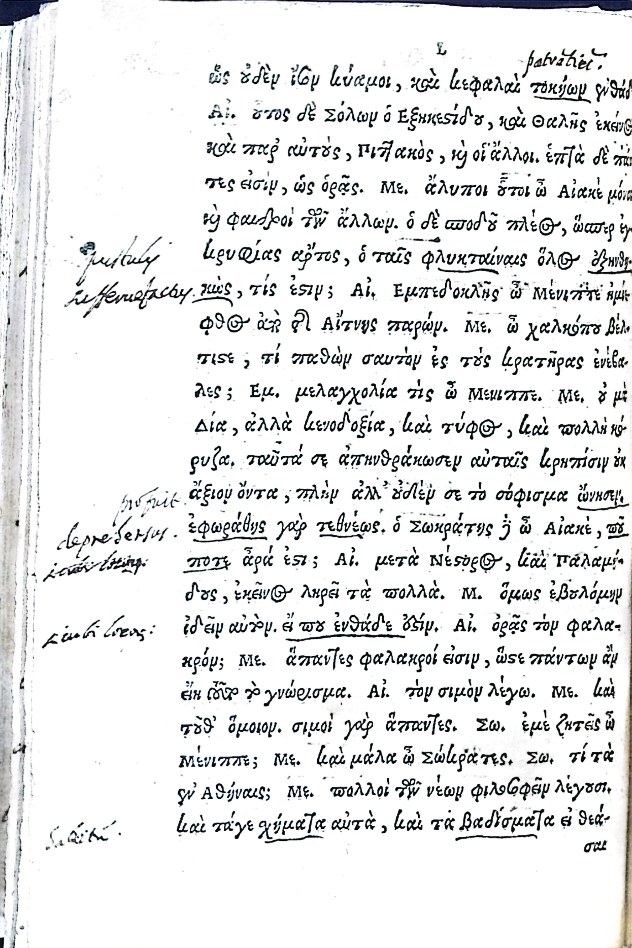 parentũ.
ὡς οὐδὲν ἴσον κύαμοι, καὶ κεφαλαὶ τοκήων ἐνθάδ
Αἰ. οὗτος δὲ Σόλων ὁ Εξηκεστίδου, καὶ Θαλῆς ἐκεῖνος
καὶ παρ' αὐτοὺς, Πιττακὸς, καὶ οἱ ἄλλοι. ἑπτὰ δὲ πάν
τες εἰσὶν, ὡς ὁρᾷς. Με. ἄλυποι οὗτοι ὦ Αἰακὲ μόνοι
καὶ φαιδροὶ τῶν ἄλλων. ὁ δὲ σποδοῦ πλέος, ὥσπερ ἐγ
κρυφίας ἄρτος, ὁ ταῖς φλυκταίναις ὅλος ἐξηνθη-
pustulis
κὼς, τίς ἐστιν; Αἰ. Εμπεδοκλῆς ὦ Μένιππε ἡμίε-
φθος ἀπὸ τῆς Αἴτνης παρών. Με. ὦ χαλκόπου βέλ-
τιστε, τί παθὼν σαυτὸν ἐς τοὺς κρατῆρας ἐνέβα-
λες; Εμ. μελαγχολία τὶς ὦ Μενιππε. Με. οὐ μὰ
Δία, ἀλλὰ κενοδοξία, καὶ τύφος, καὶ πολλὴ κό-
ρυζα. ταῦτά σε ἀπηνθράκωσεν αὐταῖς κρηπίσιν οὐκ
ἄξιον ὄντα, πλὴν ἀλλ' οὐδέν σε τὸ σόφισμα ὤνησεν.
profuit
ἐφωράθης γὰρ τεθνέως. ὁ Σωκράτης δὲ ὦ Αἰακὲ, ποῦ
deprehensus.
ποτε ἆρά ἐστι; Αἰ. μετὰ Νέστορος, καὶ Παλαμή-
δους, ἐκεῖνος ληρεῖ τὰ πολλά. Μ. ὅμως ἐβουλόμην
ἰδεῖν αὐτὸν. εἴ που ἐνθάδε ἐστίν. Αἰ. ὁρᾷς τὸν φαλα-
κρόν; Με. ἅπαντες φαλακροί εἰσιν, ὥστε πάντων ἂν
εἴη τοῦτο τὸ γνώρισμα. Αἰ. τὸν σιμὸν λέγω. Με. καὶ
τοῦθ' ὅμοιον. σιμοὶ γὰρ ἅπαντες. Σω. ἐμὲ ζητεῖς ὦ
Μένιππε; Με. καὶ μάλα ὦ Σώκρατες. Σω. τί τὰ
ἐν Αθήναις; Με. πολλοὶ τῶν νέων φιλοσοφεῖν λέγουσι.
καὶ τάγε χήματα αὐτὰ, καὶ τὰ βαδίσματα εἰ θεά-
σαι